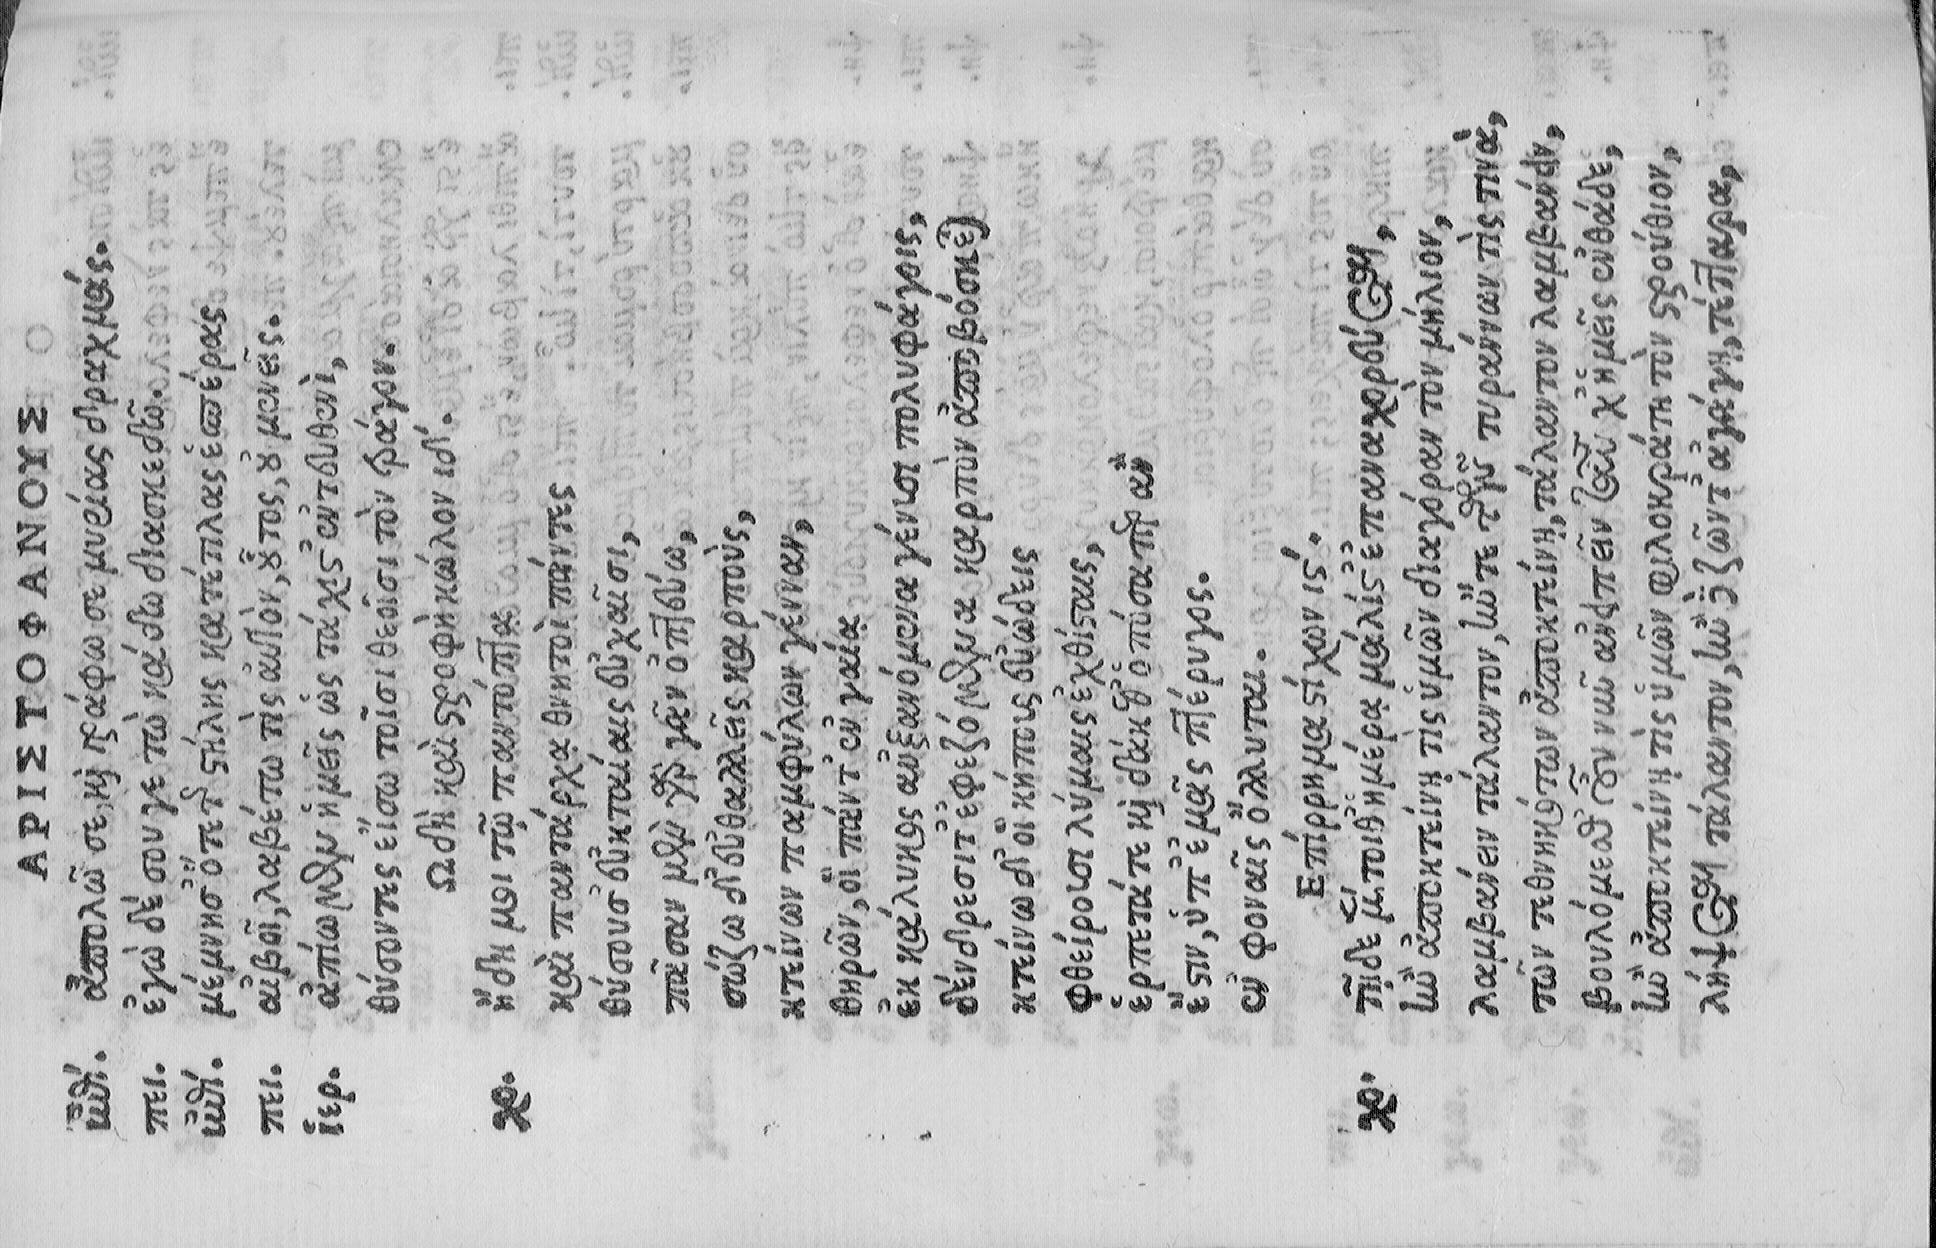 ΑΡΙΣΤΟΦΑΝΟΥΣ
ἀπολῶ σε, καὶ γράφω σε μυρίας δραχμάς.
πει. ἐγὼ δέ σου γε τὼ κάδω διασκεδῶ.
μέμνησ' ὅτε τῆς στήλης κατέτιλας ἑσπέρας
πει. αἰβοῖ, λαβέτω τὶς αὐτὸν, οὗτος, οὐ μενεῖς.
ἱερ. ἀπίωμεν ἡμεῖς ὡς τάχιστ' ἐντευθενὶ,
θύσοντες εἴσω τοῖσι θεοῖσι τὸν τράγον.
Ωδὴ καὶ στροφὴ κώλων ιδ'.
χο. ἤδη μοι τῷ παντόπτᾳ
καὶ παντάρχᾳ θνητοὶ πάντες
θύσουσ' εὐκταίαις εὐχαῖσι,
πᾶσαν μὲν γὰρ γᾶν ὀπτεύω,
σώζω δ' εὐθαλεῖς καρποὺς,
κτείνων παμφύλων γένναν,
θηρῶν, οἳ πάντ' ἐν γαίᾳ
ἐκ κάλυκος αὐξανόμενα γένυσι πολυφάγοις,
δένδρεσί τ' ἐφεζόμενα καρπὸν ἀποβόσκεται
κτείνω δ' οἳ κήποις εὐώδεις
φθείρουσι λύμαις ἐχθίσταις,
ἑρπετά τε καὶ δάκεθ' ὁπόσα περ ἂν
ἔστιν, ὑπ' ἐμᾶς πτέρυγος.
ἐν φοναῖς ὄλλυται.
Επίρρημα στίχων ις'.
χο. τῇδε μέντοι θἠμέρᾳ μάλιστ' ἐπαναχορεύεται,
ἢν ἀποκτείνῃ τὶς ὑμῶν διαγόραν τὸν μήλιον,
λαμβάνειν τάλαντον, ἤν τε τῶν τυράννων τὶς τινὰ,
τῶν τεθνηκότων ἀποκτείνῃ, τάλαντον λαμβάνειν,
βουλόμεσθ' οὖν νῦν ἀνειπεῖν ταῦτα χἠμεῖς ἐνθάδε,
ἢν ἀποκτείνῃ τὶς ὑμῶν φιλοκράτη τὸν στρούθιον,
λήψεται τάλαντον, ἢν δὲ ζῶντ' ἀγάγῃ, τέτταρα,